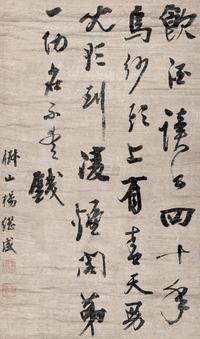 飲酒讀書四十年
烏紗頭上有青天男
兒欲到凌煙閣第
一功名不愛錢
椒山楊繼盛